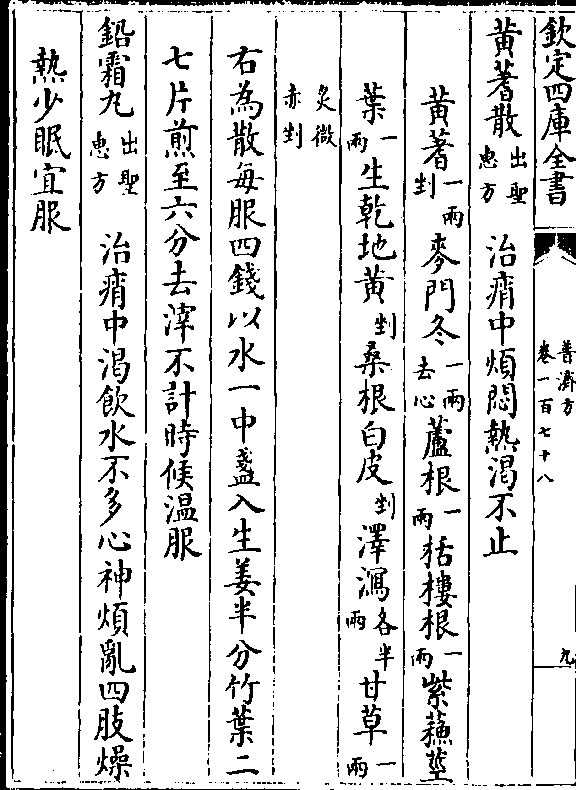 欽定四庫全書
普濟方
卷一百七十八
九
黄蓍散出聖惠方 治痟中煩悶熱渴不止
黄蓍一兩剉 麥門冬一兩去心 蘆根一兩 括樓根一兩 紫蘓莖
葉一兩 生乾地黄剉 桑根白皮剉 澤瀉各半兩 甘草一兩
炙微赤剉
右為散每服四錢以水一中盞入生姜半分竹葉二
七片煎至六分去滓不計時候温服
鉛霜丸出聖惠方 治痟中渴飲水不多心神煩亂四肢燥
熱少眠宜服